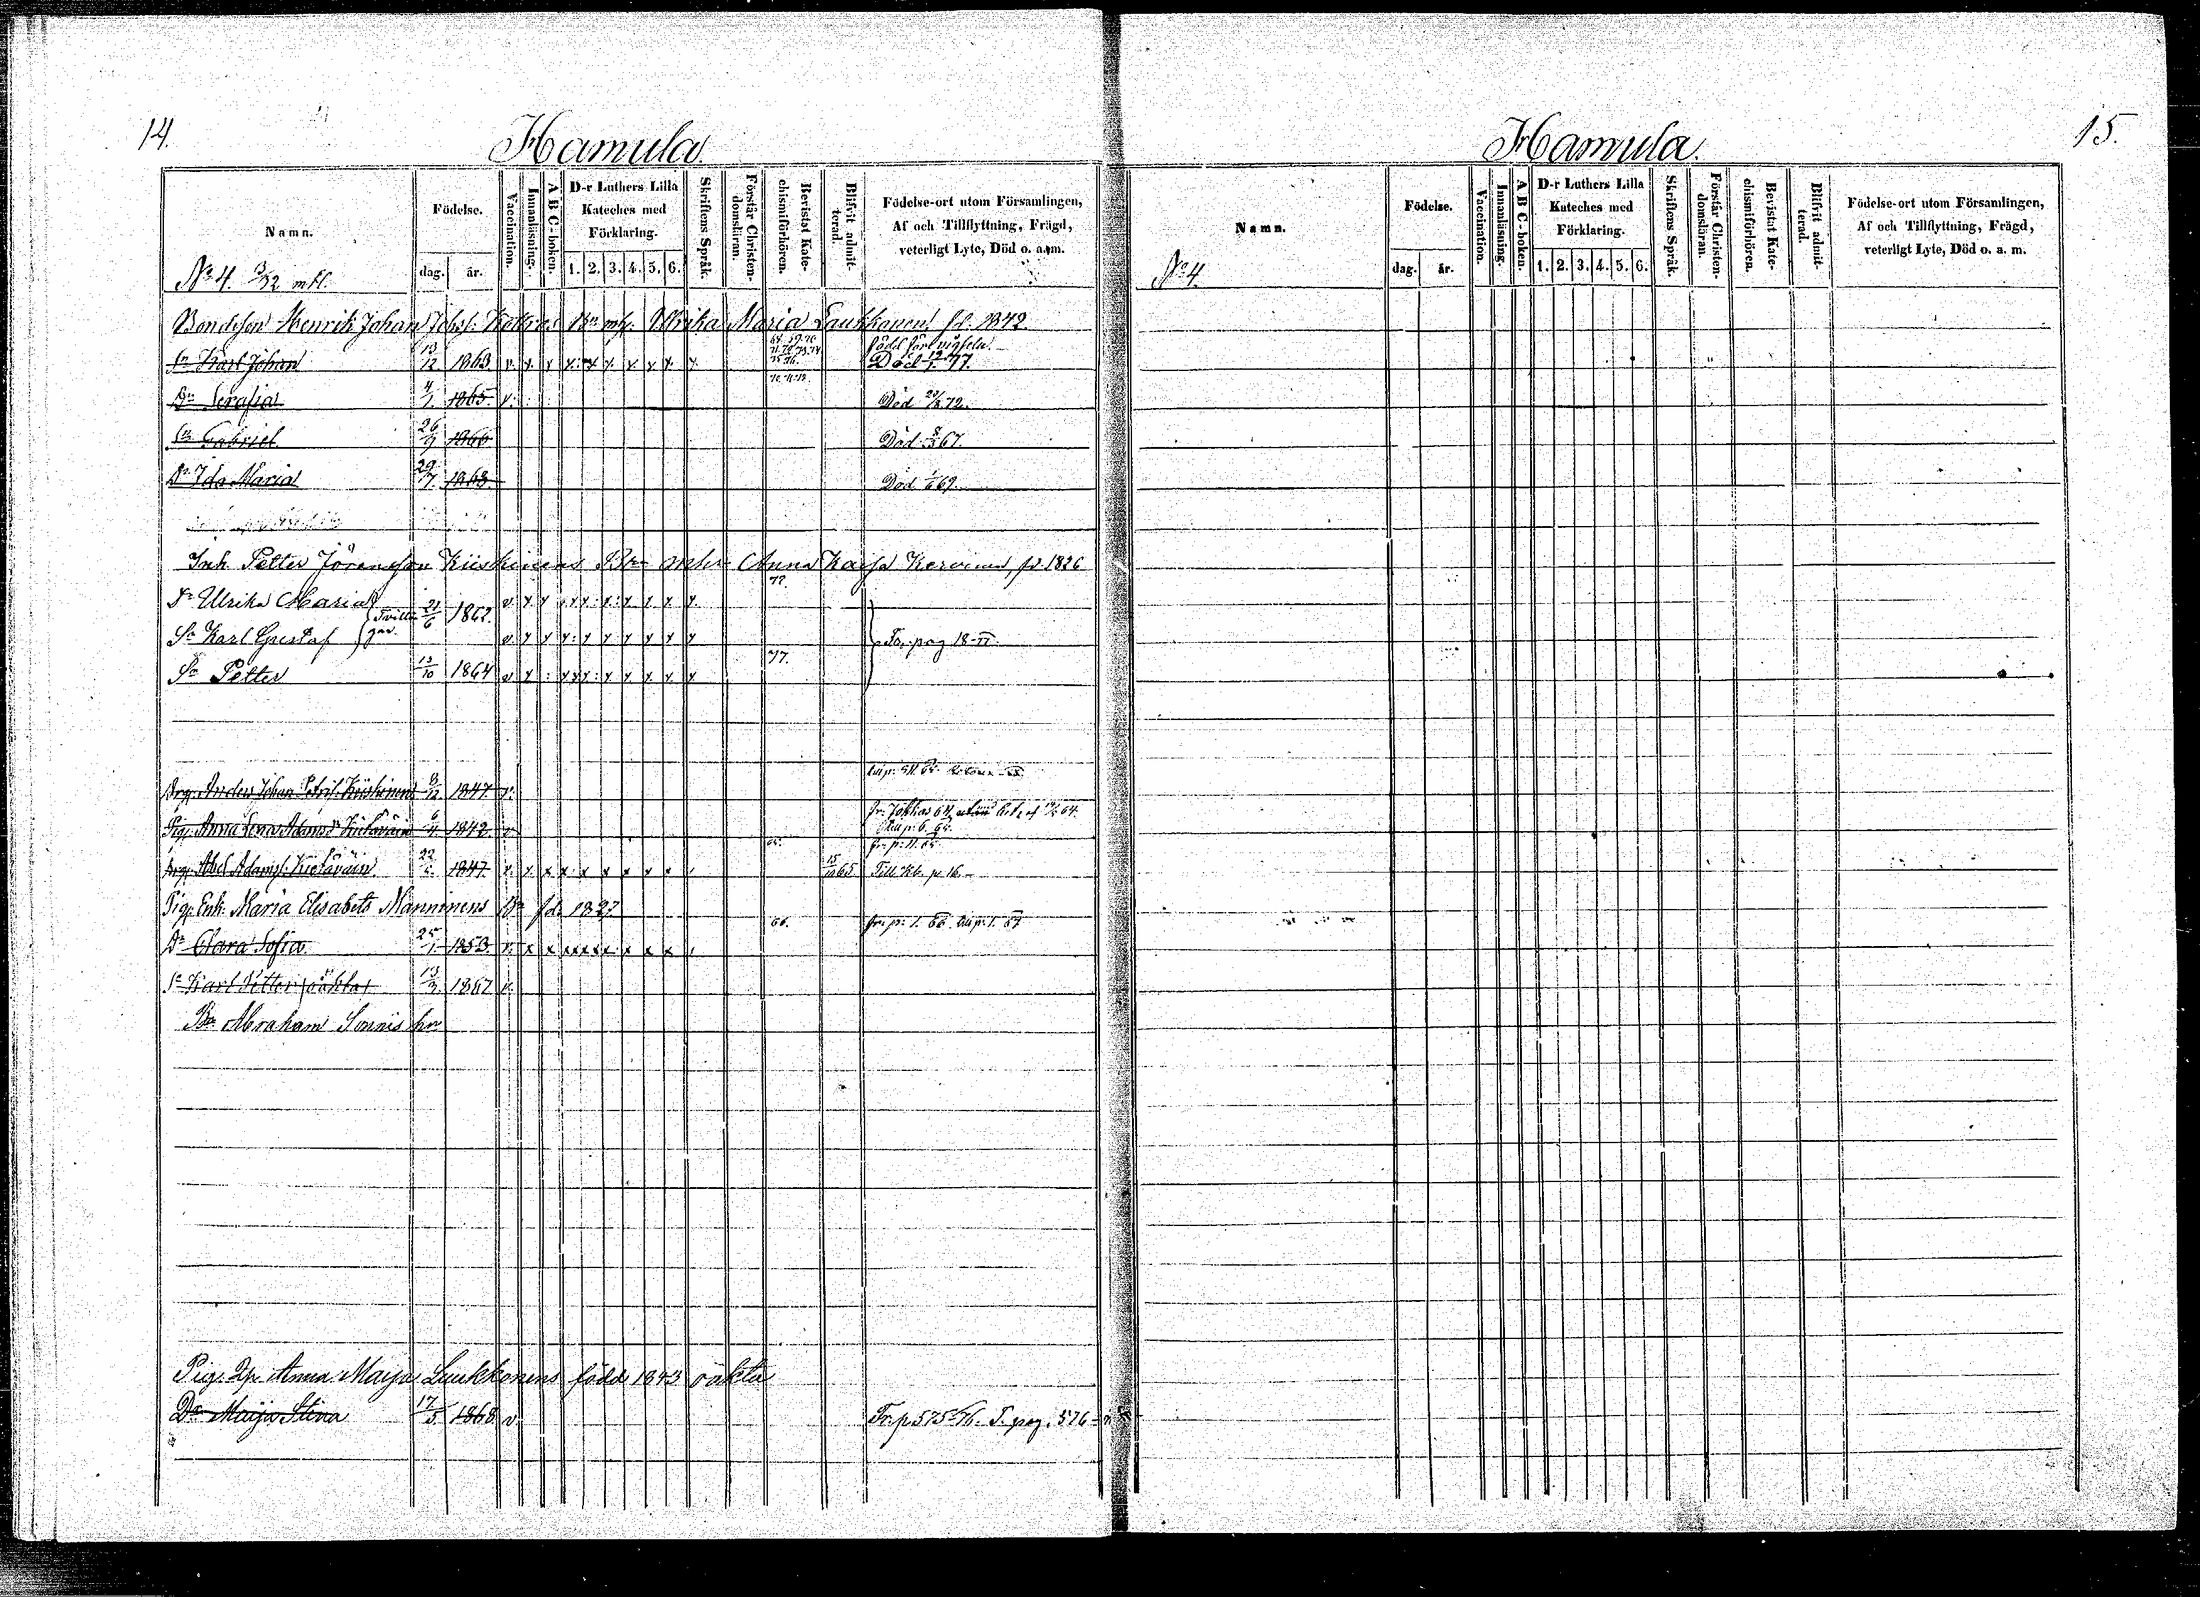 14.
Hamula.
Namn.
Födelse.
dag.
år.
Vaccination.
Innanläsning.
A B C-boken.
D-r Luthers Lilla
Kateches med
Förklaring.
1. 2. 3. 4. 5. 6.
Skriftens Språk.
Förstår Christen-
domsläran.
Bevistat Kate-
chismiförhören.
Blifvit admit-
terad.
Födelse-ort utom Församlingen,
Af och Tillflyttning, Frägd,
veterligt Lyte, Död o. a. m.
No 4. 3/32 mtl.
Bondeson Henrik Johan Johsf. Kokros Bn mh. Ulrika Maria Laukkanen fd. 1842
Sn Karl Johan 13/12 1863. v. x x x x x x x x x född före vigseln. Död 77.
Dr Serafia 4/1 1865. v. Död 72.
Sn Gabriel 26/9 1866 Död 67.
Dr Ida Maria 29/7 1868. Död 1/6 69.
Inh. Petter Jöransson Kiiskinens Brn Anna Kaisa fd 1826
72.
Dr Ulrika Maria 21/6 1862. v x x x x x x x x x
Tvillin-
gar.
Sn Karl Gustaf v x x x x x x x x x Fr. pag 18-77.
77.
Sn Petter 13/10 1864 v x x x x x x x x
Drg. Anders Johan Petrif. Kiiskinen 8/12 1847. v.
Pig. Anna Lena Adamsdr Kieläväin 6/4 1842. v
fr. p. 11. 65.
Drg. Abel Adamsf. Kieläväin 22/2 1847. v. x x x x x x x x 15/10 65 Till Kb. p 16.
Pig. Enk. Maria Elisabets Manninens Bn fd. 1827
66. fr. p: 1. 66. Au p: 1. 67
Dr Clara Sofia. 25/1 1853. v. x x x x x x x x
Sn Karl Petter (oäkta) 13/3 1867 v.
Bn Abraham Sonnis hr
Pig. Anna Maija Luukkonens född 1843 oäkta
Dr Maija Stina 17/5 1868. v. Fr. p 575 76. T. pag. 576
Hamula.
15.
Namn.
Födelse.
dag.
år.
Vaccination.
Innanläsning.
A B C-boken.
D-r Luthers Lilla
Kateches med
Förklaring.
1. 2. 3. 4. 5. 6.
Skriftens Språk.
Förstår Christen-
domsläran.
Bevistat Kate-
chismiförhören.
Blifvit admit-
terad.
Födelse-ort utom Församlingen,
Af och Tillflyttning, Frägd,
veterligt Lyte, Död o. a. m.
No 4.